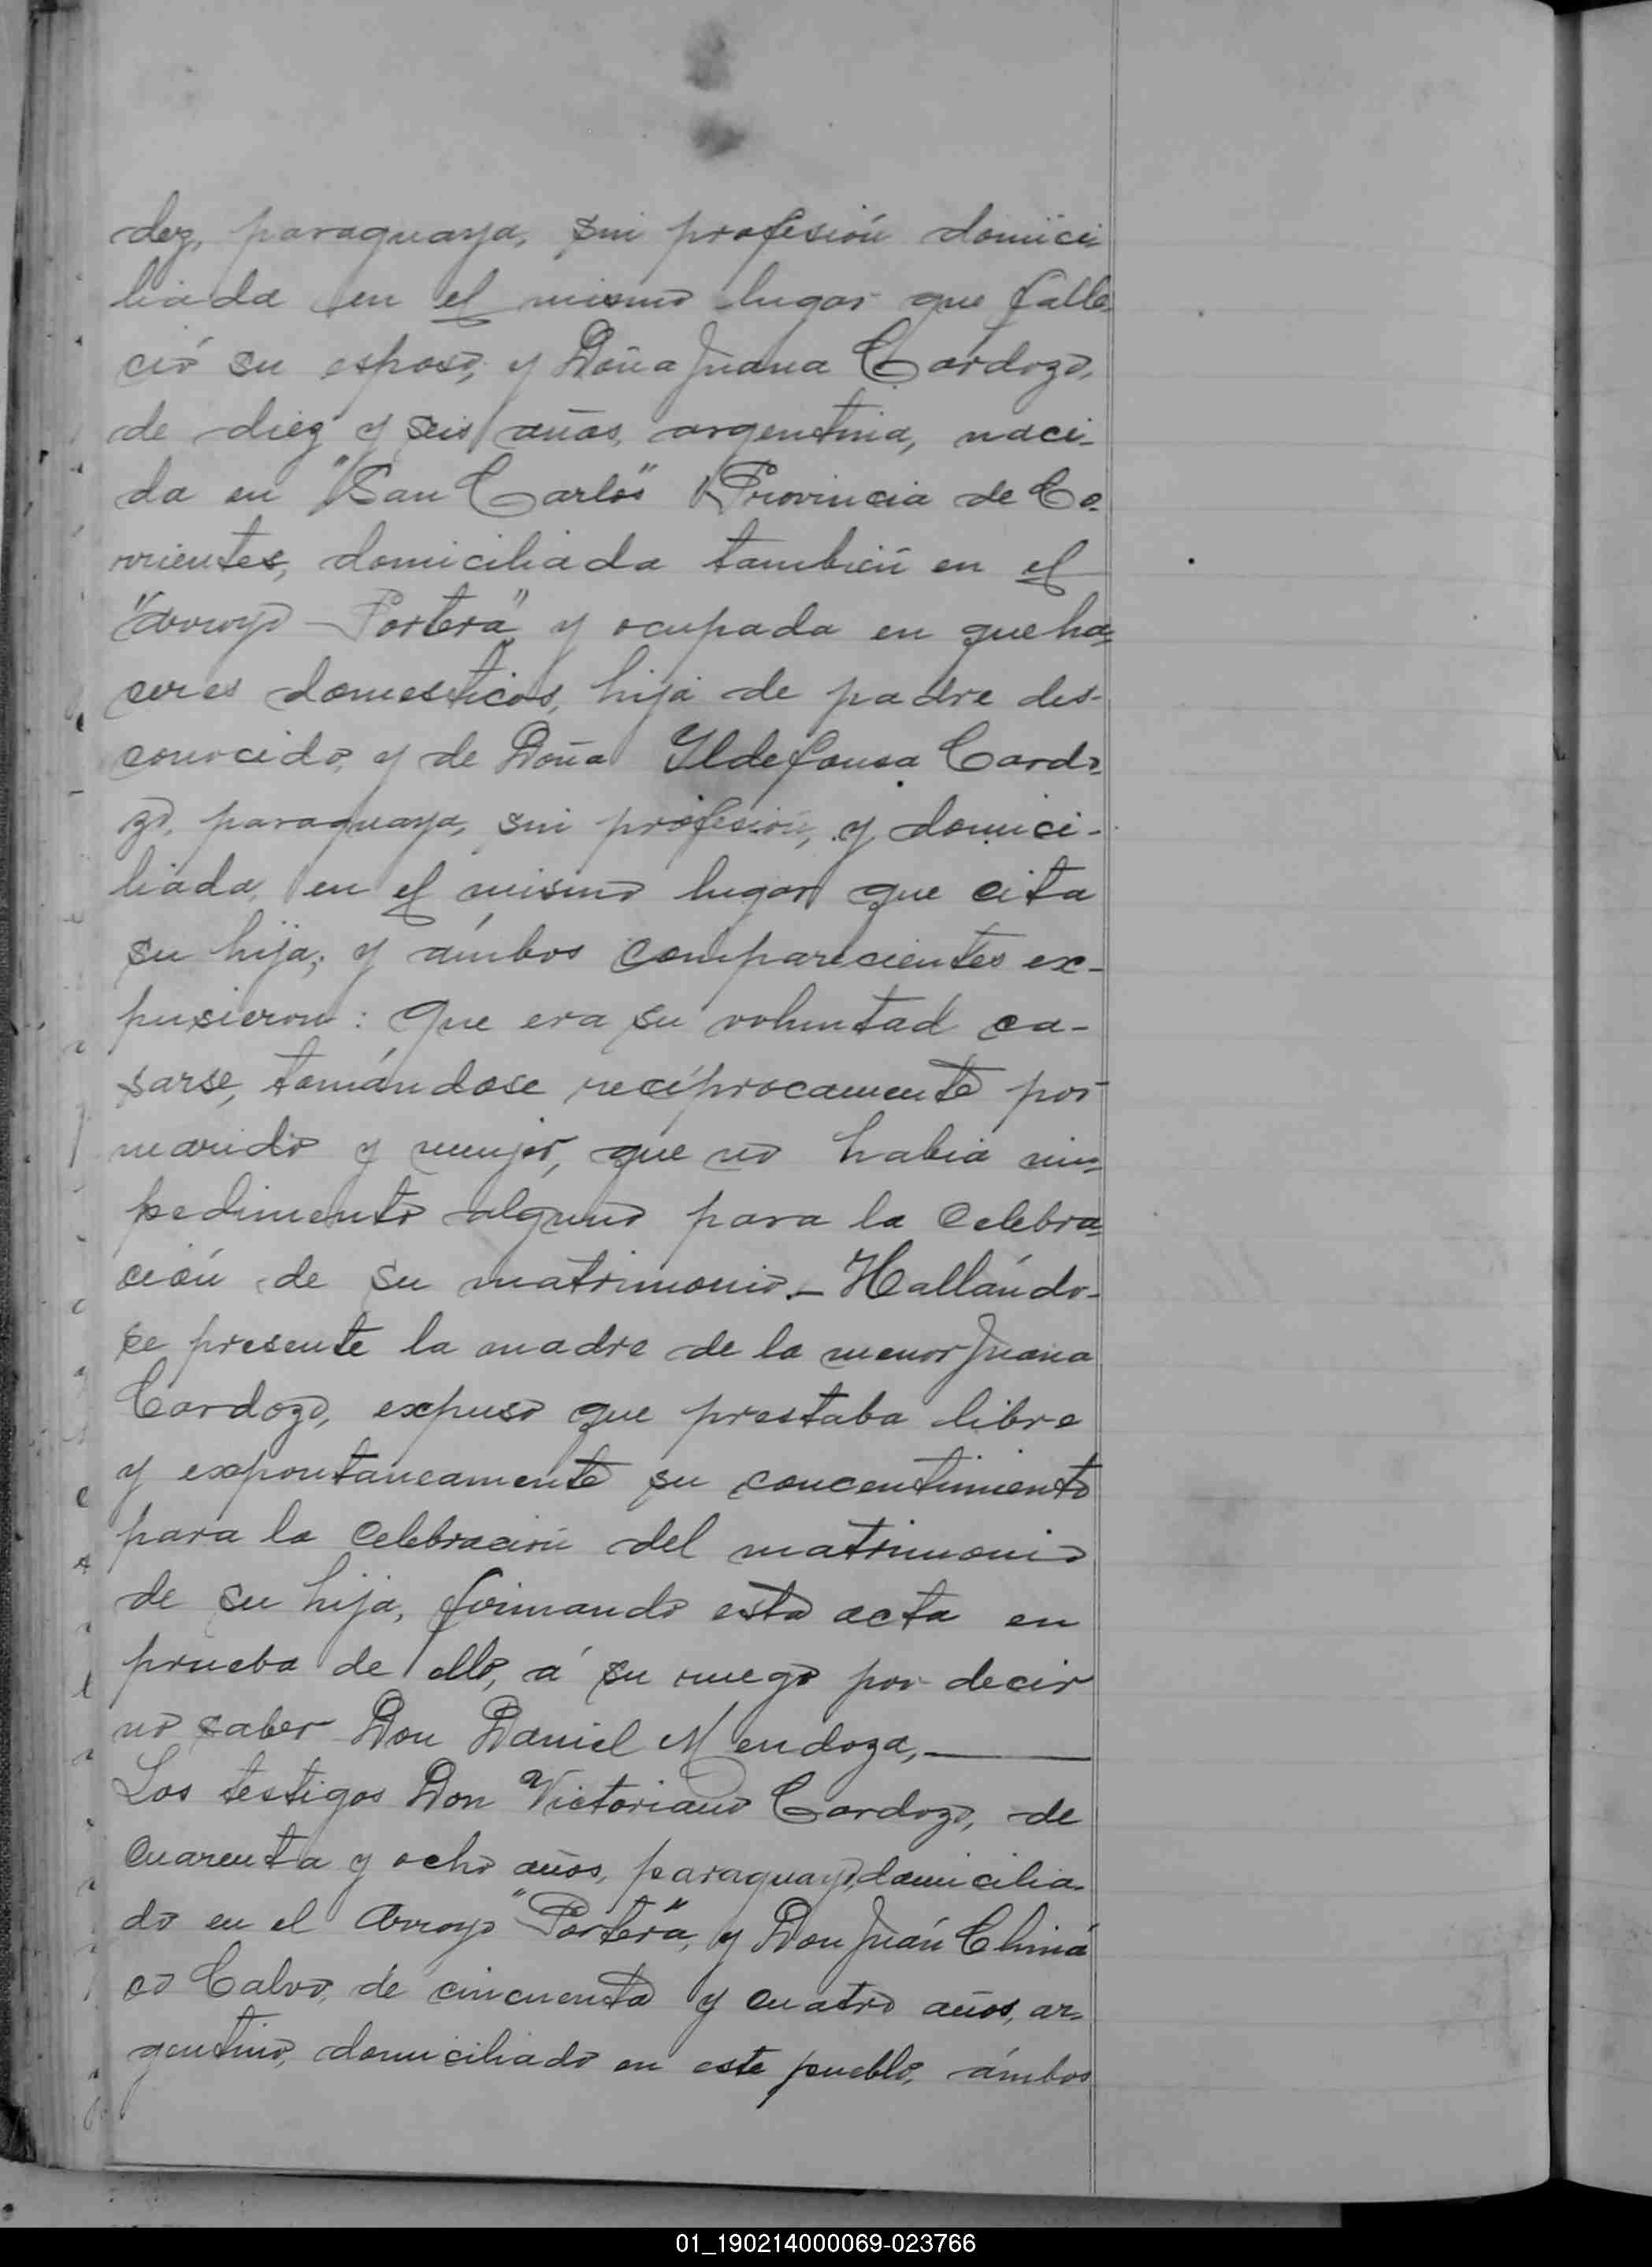 dez, paraguaya, sin profesión domici
liada en el mismo lugar que falle
ció su esposo, y Doña Juana Cardozo,
de diez y seis años, argentina, naci-
da en "San Carlos" Provincia de Co-
rrientes, domiciliada también en el
"Arroyo Portera" y ocupada en queha-
ceres domesticos, hija de padre des-
conocido, y de Doña Yldefonsa Cardo-
zo, paraguaya, sin profesión, y domici-
liada, en el mismo lugar que cita
su hija; y ámbos comparecientes ex-
pusieron: Que era su voluntad ca-
sarse, tomándose recíprocamente por
marido y mujer, que no habia im-
pedimento alguno para la celebra-
ción de su matrimonio.- Hallándo-
se presente la madre de la menor Juana
Cardozo, expuso que prestaba libre
y expontaneamente su concentimiento
para la celebración del matrimonio
de su hija, firmando esta acta en
prueba de ello, á su ruego por decir
no saber Don Daniel Mendoza,-
Los testigos Don Victoriano Cardozo, de
cuarenta y ocho años, paraguayo, domicilia-
do en el Arroyo "Portera", y Don Juán Climá
co Calvo, de cincuenta y cuatro años, ar-
gentino, domiciliado en este pueblo, ámbos
01_190214000069-023766